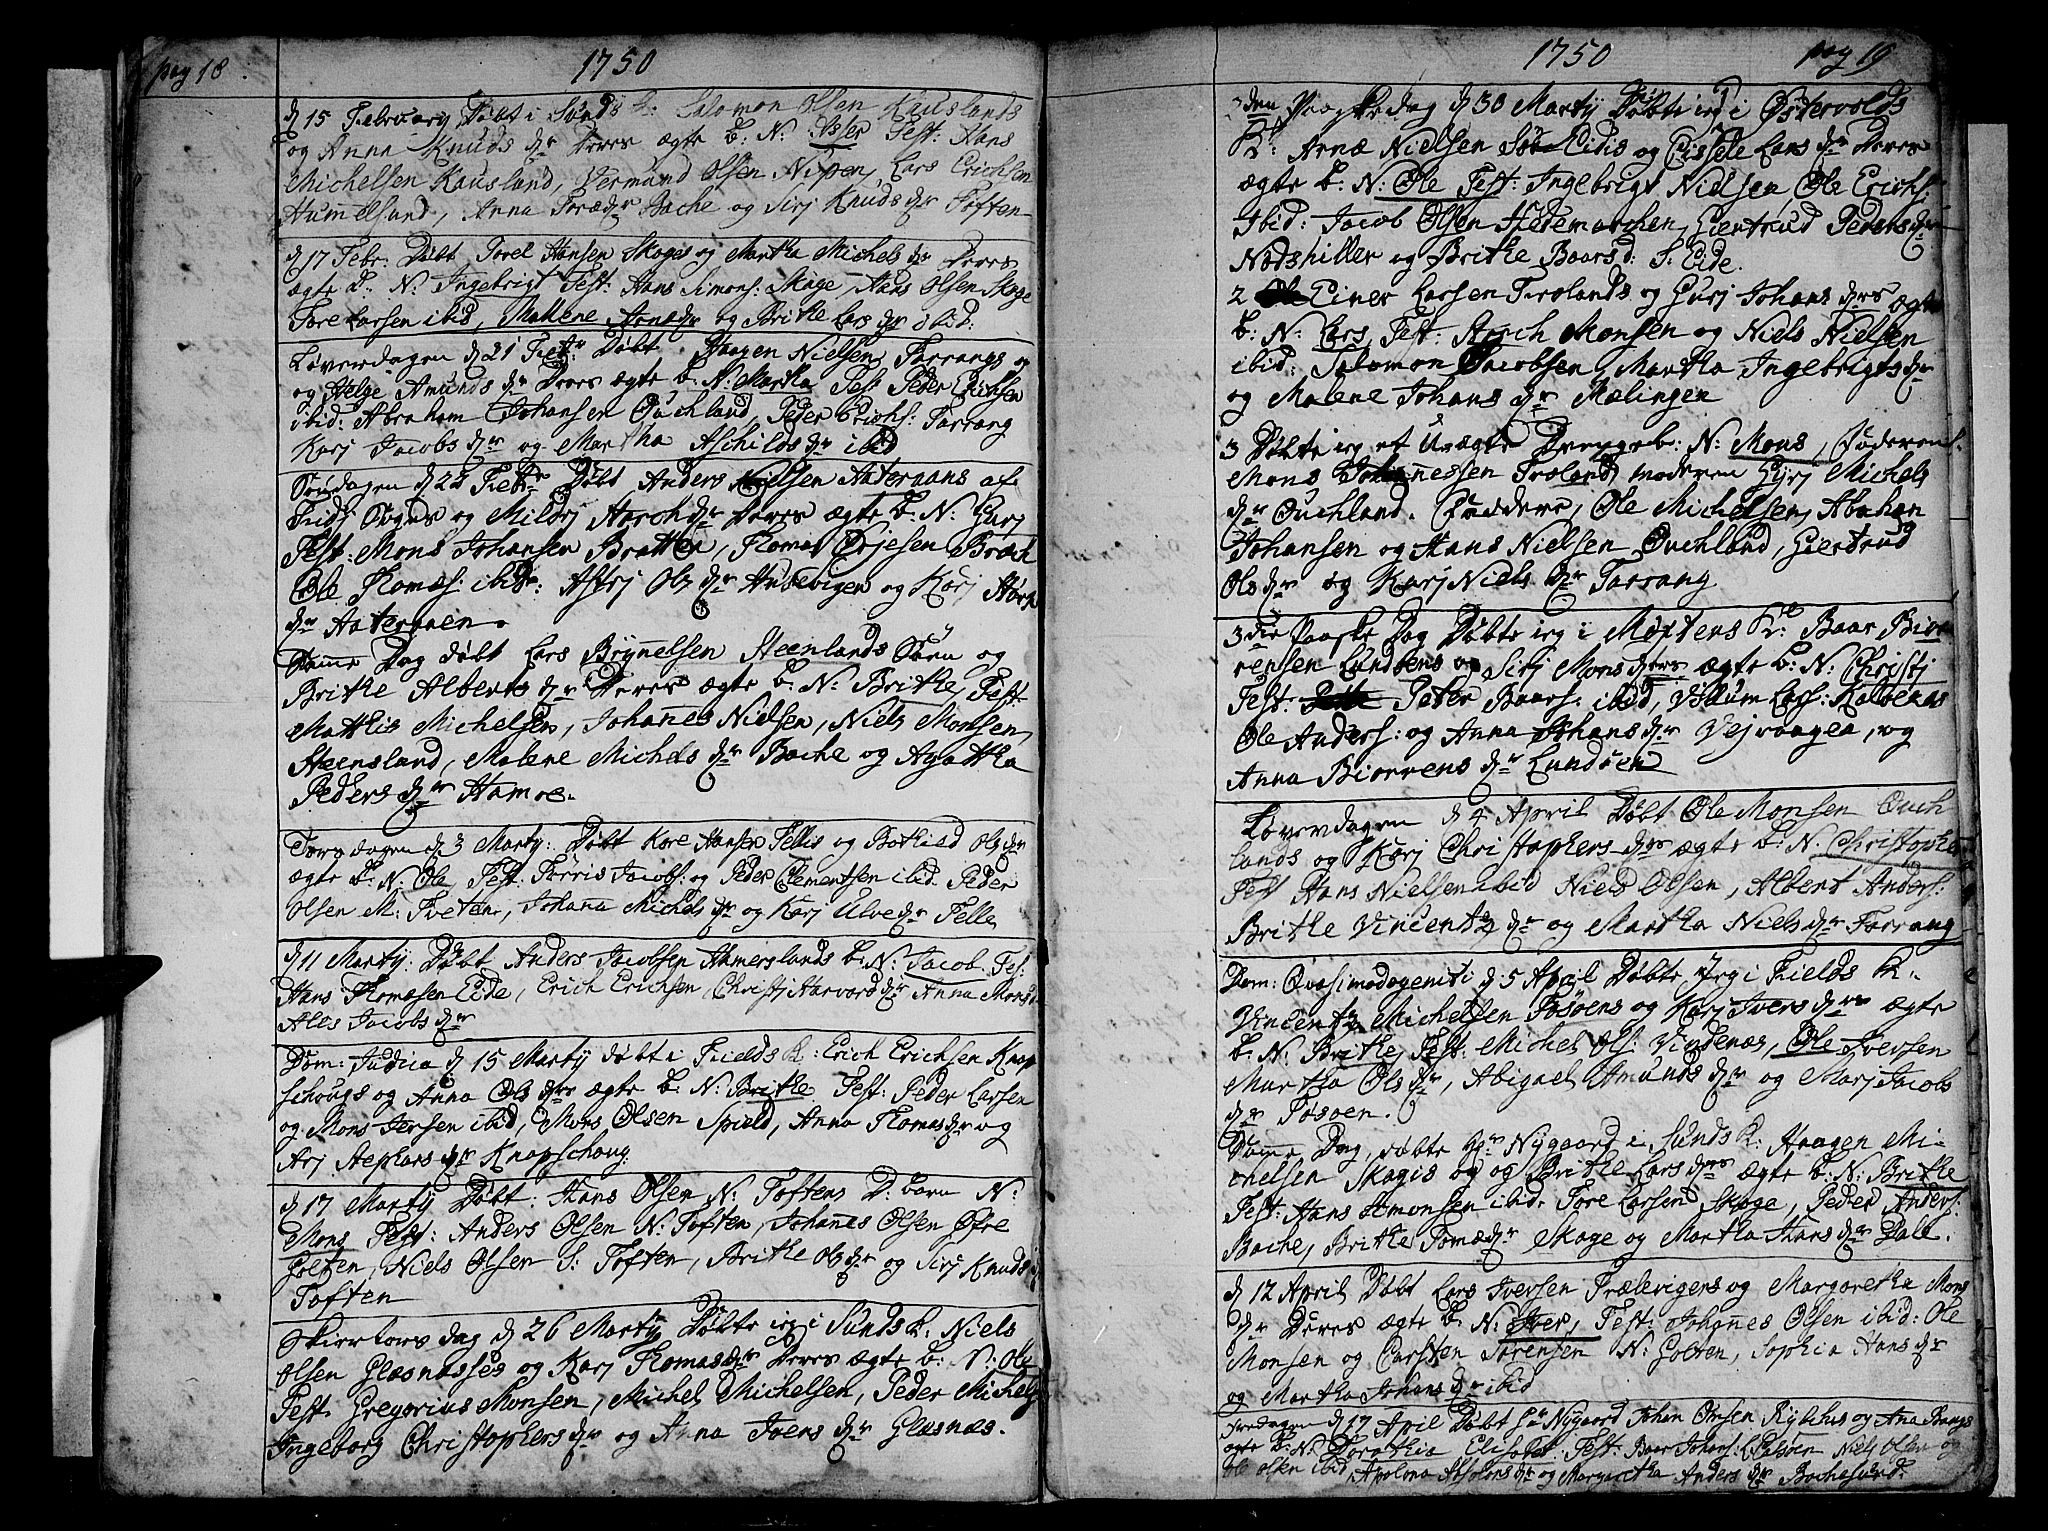 pag 18
1750
d 15 February Døbt i Sunds K: Salomon Olsen Kauslands
og Anna Knuds dr Deres ægte B: N: Asser Test: Hans
Michelsen Kausland, Vermund Olsen Nipen, Lars Erichsen
Hummelsund, Anna Toredr Bache og Sirj Knuds dr Toften
d 17 Febr: Døbt Torel Hansen Skoges og Martha Michels dr Deres
ægte B: N: Ingebrigt Test: Hans Simons: Skoge, Hans Olsen Skoge
Tore Larsen ibid, Mallene Arnedr og Brithe Lars dr ibid:
Løverdagen d 21 Febr: Døbt Haagen Nielsen Tarrangs og
og Helge Amunds dr Deres ægte B: N: Martha Test Peder Erichsen
ibid: Abraham Johansen Ouchland, Peder Erichs: Tarrang
Karj Jacobs dr og Martha Aschilds dr ibid
Søndagen d 22 Febr Døbt Anders Nielsen Haterøens af
Sogns og Mildrj Harch dr Deres ægte B: N: Gurj
Test: Mons Johansen Bratten, Thomas Børjesen
Ole Thomæs: ibid: Astrj Ols dr Husevigen og Karj
dr Haterøen.
Samme Dag døbt Lars Brynnelsen Steenlands Søn og
Brithe Alberts dr Deres ægte B: N: Brithe, Test
Mattis Michelsen, Johannes Nielsen, Niels Monsen
Steensland, Malene Michels dr Bache og Agattha
Peders dr Hamoe.
Torsdagen d 3 Marty: Døbt Kore Hansen Telles og Bothild Ols dr
ægte B: N: Ole Test: Torris Jacobs: og Peder Clementsen ibid Peder
Olsen M: Tveten, Johanna Michels dr og Karj Ulve dr Telle
d 11 Marty: Døbt Anders Jacobsen Hamerslands B: N: Jacob Tes:
Hans Thomæsen Eide, Erich Erichsen, Christj Harvard dr Anna Mons
Ales Jacobs dr
Dom: Judica d 15 Marty døbt i Fields K: Erich Erichsen Knap
schougs og Anna Ols drs ægte B: N: Brithe Test: Peder Larsen
og Mons Jensen ibid, Mons Olsen Spield, Anna Thomas dr og
Arj Stephans dr Knapschoug
d 17 Marty Døbt: Hans Olsen N: Toftens D: barn N:
Mons Test: Anders Olsen N: Toften, Johanes Olsen Øfre
Golten, Niels Olsen S: Toften, Brithe Ols dr og Sirj Knuds
Toften
Skiertors dag d 26 Marty Døbte ieg i Sunds K: Niels
Olsen Glæsnæsses og Karj Thomas dr Deres ægte B: N: Ole
Test Gregorius Monsen, Michel Michelsen, Peder Michels
Ingeborg Christophers dr og Anna Ivers dr Glæsnæs.
1750
pag 19
2den Paaske dag d 30 Marty Døbte ieg i Østervolds
K: Arnæ Nielsen Eidis og Cissele Lars dr Deres
ægte B: N: Ole Test: Ingebrigt Nielsen, Ole Erichs:
Ibid: Jacob Olsen Hedemarchen, Giertrud Peders dr
Nodshiller og Brithe Baars d: S: Eide.
2 Einer Larsen Trolands og Gurj Johans drs ægte
B: N: Lars, Test: Monsen og Niels Nielsen
ibid: Salomon Jacobsen, Martha Ingebrigts dr
og Malene Johans dr Mælingen
3 Døbte ieg et Uægte Drengeb: N: Mons, Faderen
Mons Johannessen Troland, moderen Gurj Michels
dr Ouchland. Faddere, Ole Michelsen, Abraham
Johansen og Hans Nielsen Ouchland, Giertrud
Ols dr og Karj Niels dr Tarrang
3die Paaske Dag Døbte ieg i Møstens K: Baar Bior
rensen Lundøens og Sirj Mons drs ægte B: N: Christj
Test: Peter Baars: ibid, Villum Lars: Kalvenæs
Ole Anders: og Anna Johans dr Vejvaagen, og
Anna Biorrens dr Lundøen
Løverdagen d 4 April Døbt Ole Monsen Ouch
lands og Karj Christophers drs ægte B: N. Christopher
Test Hans Nielsen ibid Niels Olsen, Albert Anders:
Brithe Vincentz dr og Martha Niels dr Tarrang
Dom: Qvasimodogeniti d 5 April Døbte Jeg i Fields K:
Vincentz Michelsen Tøsøens og Karj Ivers drs ægte
B: N: Brithe, Test: Michel Ols: Vindenæs, Ole Iversen
Martha Ols dr, Abigael Amunds dr og Marj Jacobs
dr Tøsøen.
Samme Dag, døbte Hr Nygaard i Sunds K: Haagen Mi-
chelsen Skogis og og Brithe Lars drs ægte B: N: Brithe
Test: Hans Simonsen ibid Tore Larsen Skoge, Peder Anders:
Bache, Brithe Tomædr Skoge og Martha Hans dr Dale.
d 12 April Døbt Lars Iversen Trælevigens og Margaretha Mons
dr Deres ægte B: N: Iver, Test: Johannes Olsen ibid: Ole
Monsen og Carsten Sørensen N: Golten, Sophia Hans dr
og Martha Johans dr ibid
Fredagen d 17 April Døbt Hr Nygaard Johan Omsen og Ana
ægte B: N: Dorothia Elisabet Test: Baar Johans: Niels Olsen og
Ole Olsen ibid, Apolona Absolons dr og Margaretha Anders dr Bachesund: